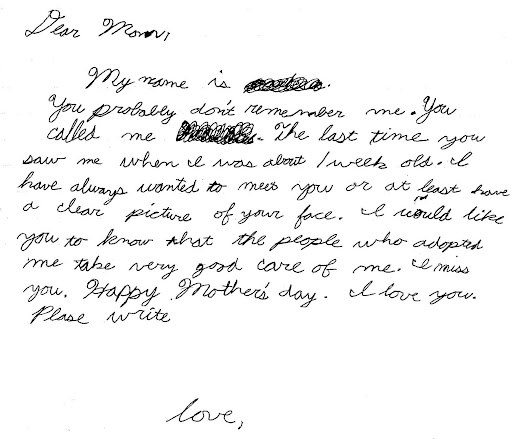 Dear Mom,
My name is
You probably don't remember me. You
called me . The last time you
saw me when I was about 1 week old. I
have always wanted to meet you or at least have
a clear picture of your face. I would like
you to know that the people who adopted
me take very good care of me. I miss
you. Happy Mother's day. I love you.
Plase write
love,